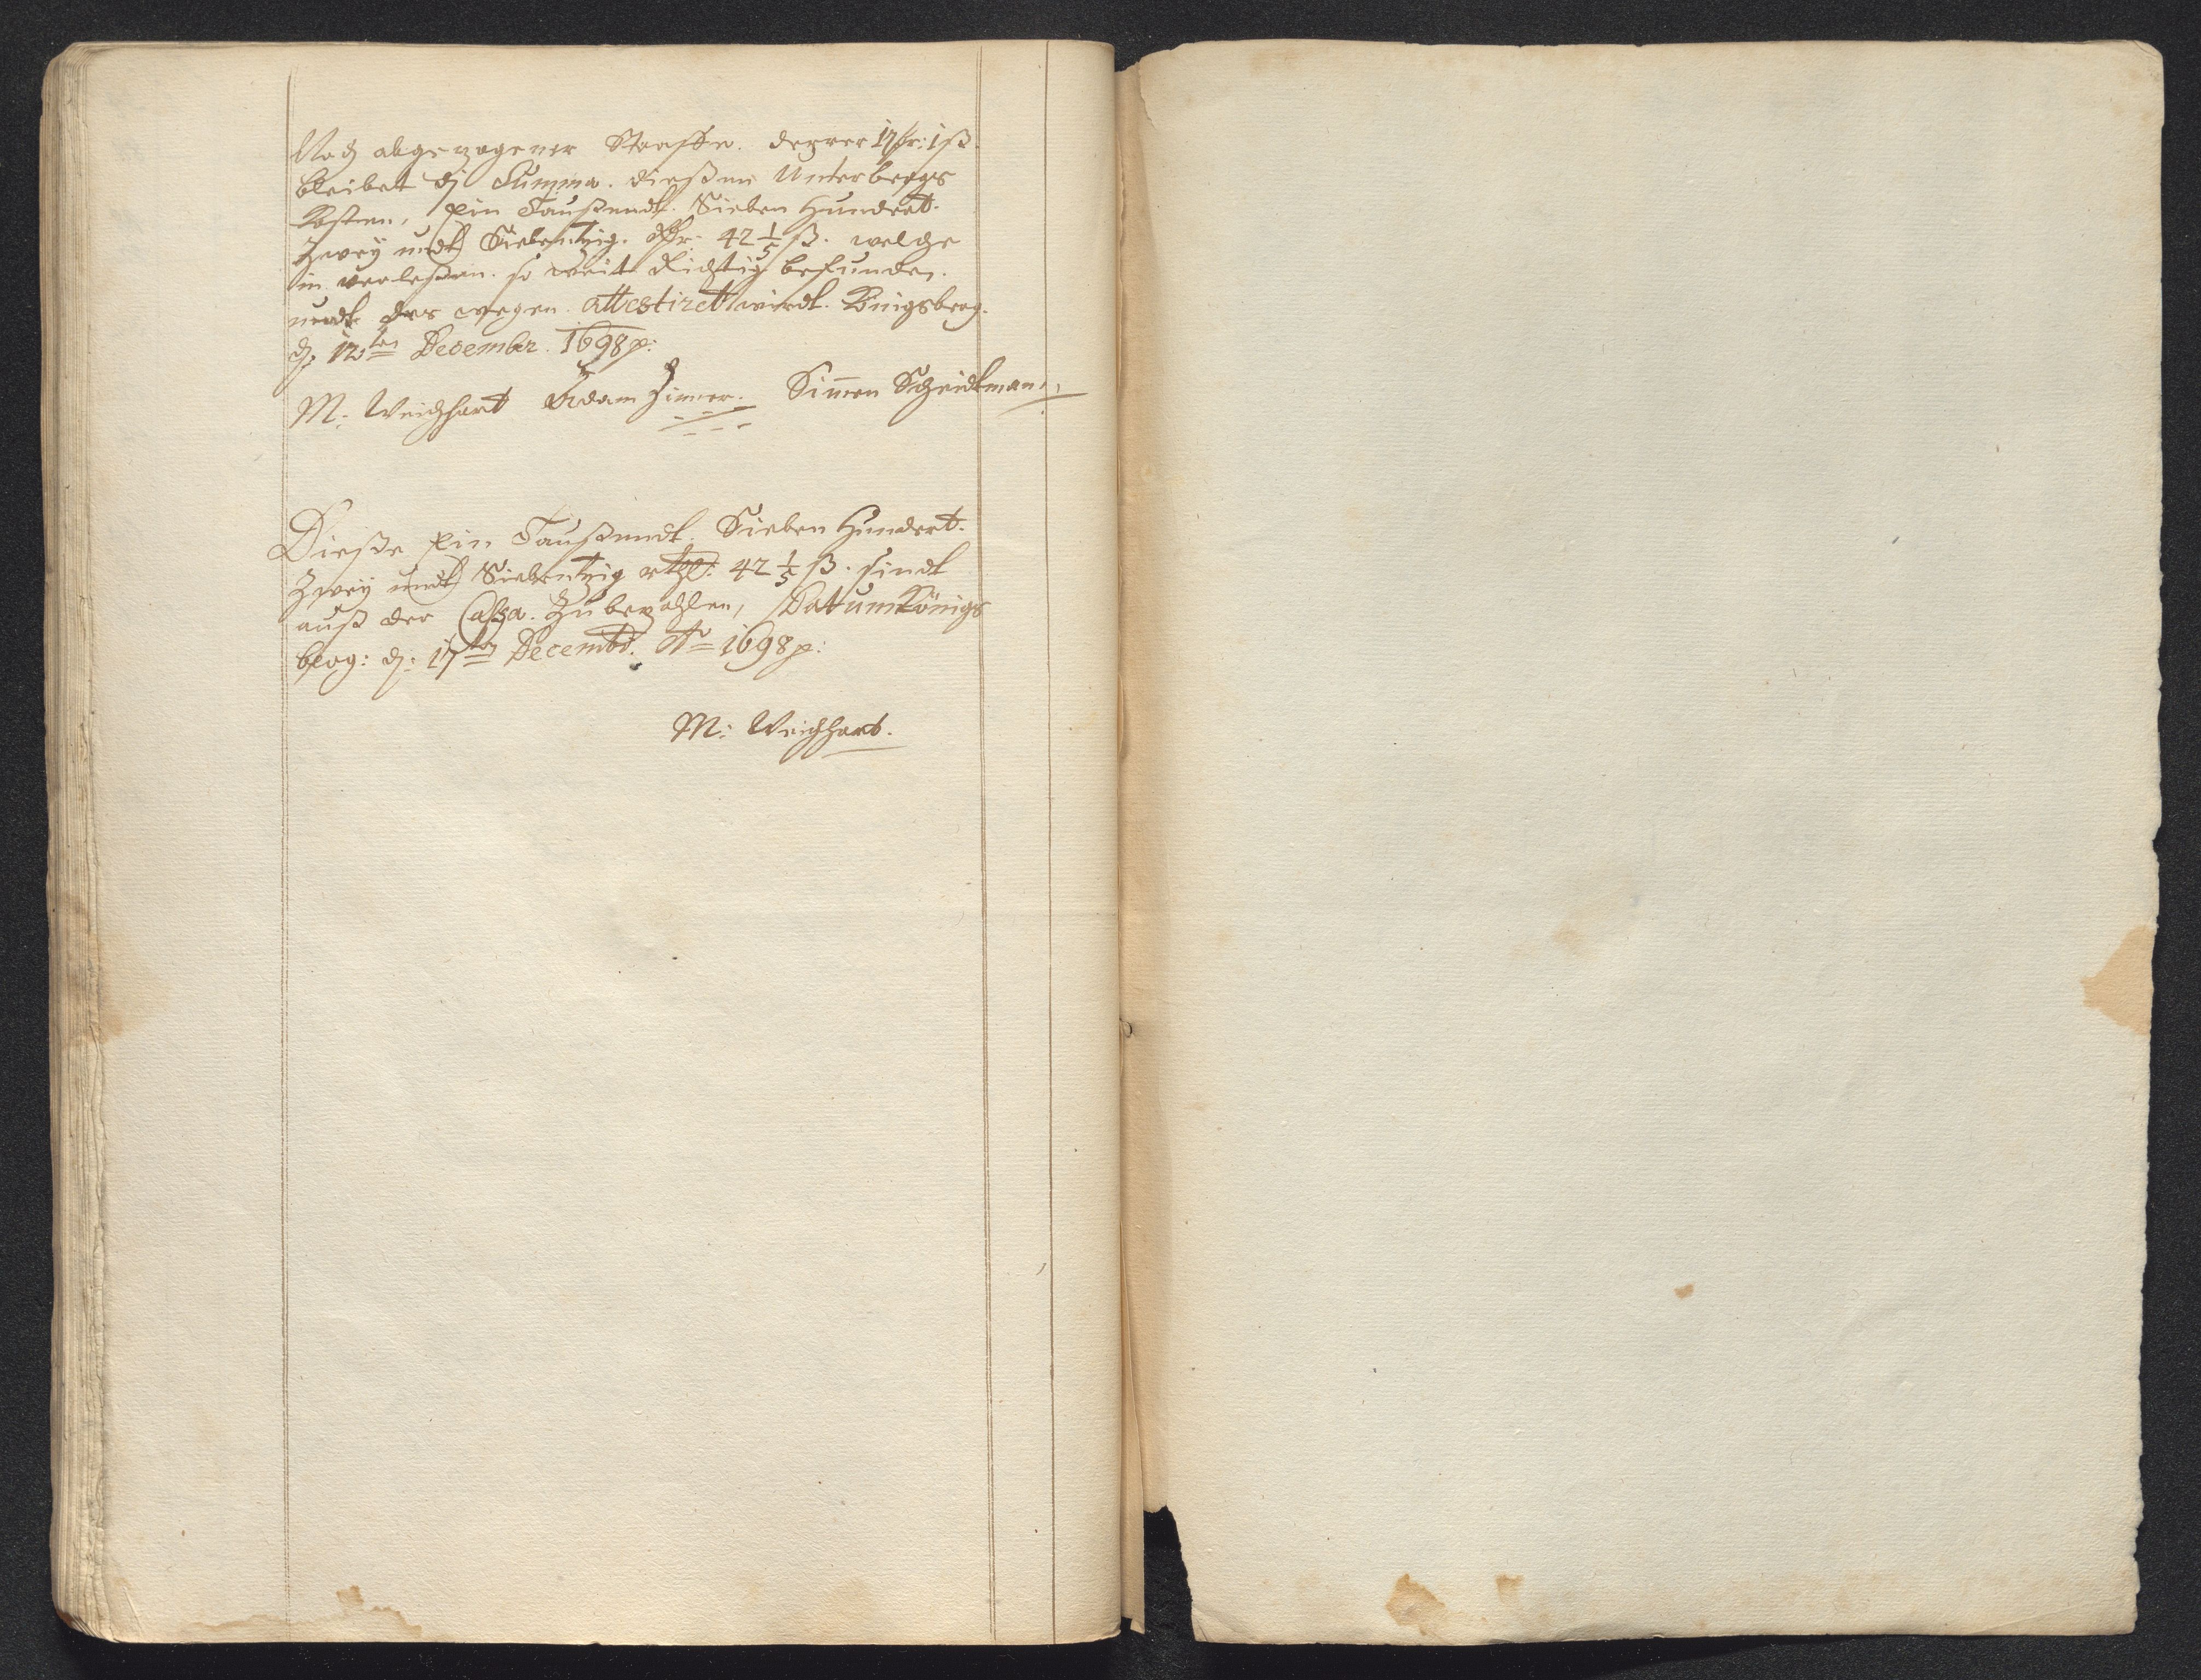 Nach abgezogener Straffe. derrer 17 hr: 1 ß
bleibet dj Summa. dießem Unterbergs
Kosten, Ein Taußendt. Sieben Hundert.
Zwey undt Siebentzig. 42 1/5 ß. welche
in verleßen. so weit Richtig befunden.
undt des wegen. attestiret wirdt. Königsberg.
d: 17ten December. 1698 p:
M: Weichhart Adam Zimer. Simon Scheidtman
Dieße Ein Taußendt. Sieben Hundert.
Zwey undt Siebentzig rthl: 42 1/5 ß. sindt
auß der Cassa. Zu bezahlen, Datum Königs
berg: d: 17ten Decembr: Ao 1698 p:
M: Weichhart.